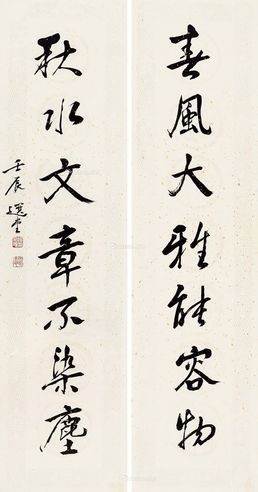 春風大雅能容物
秋水文章不染塵
壬辰 選堂